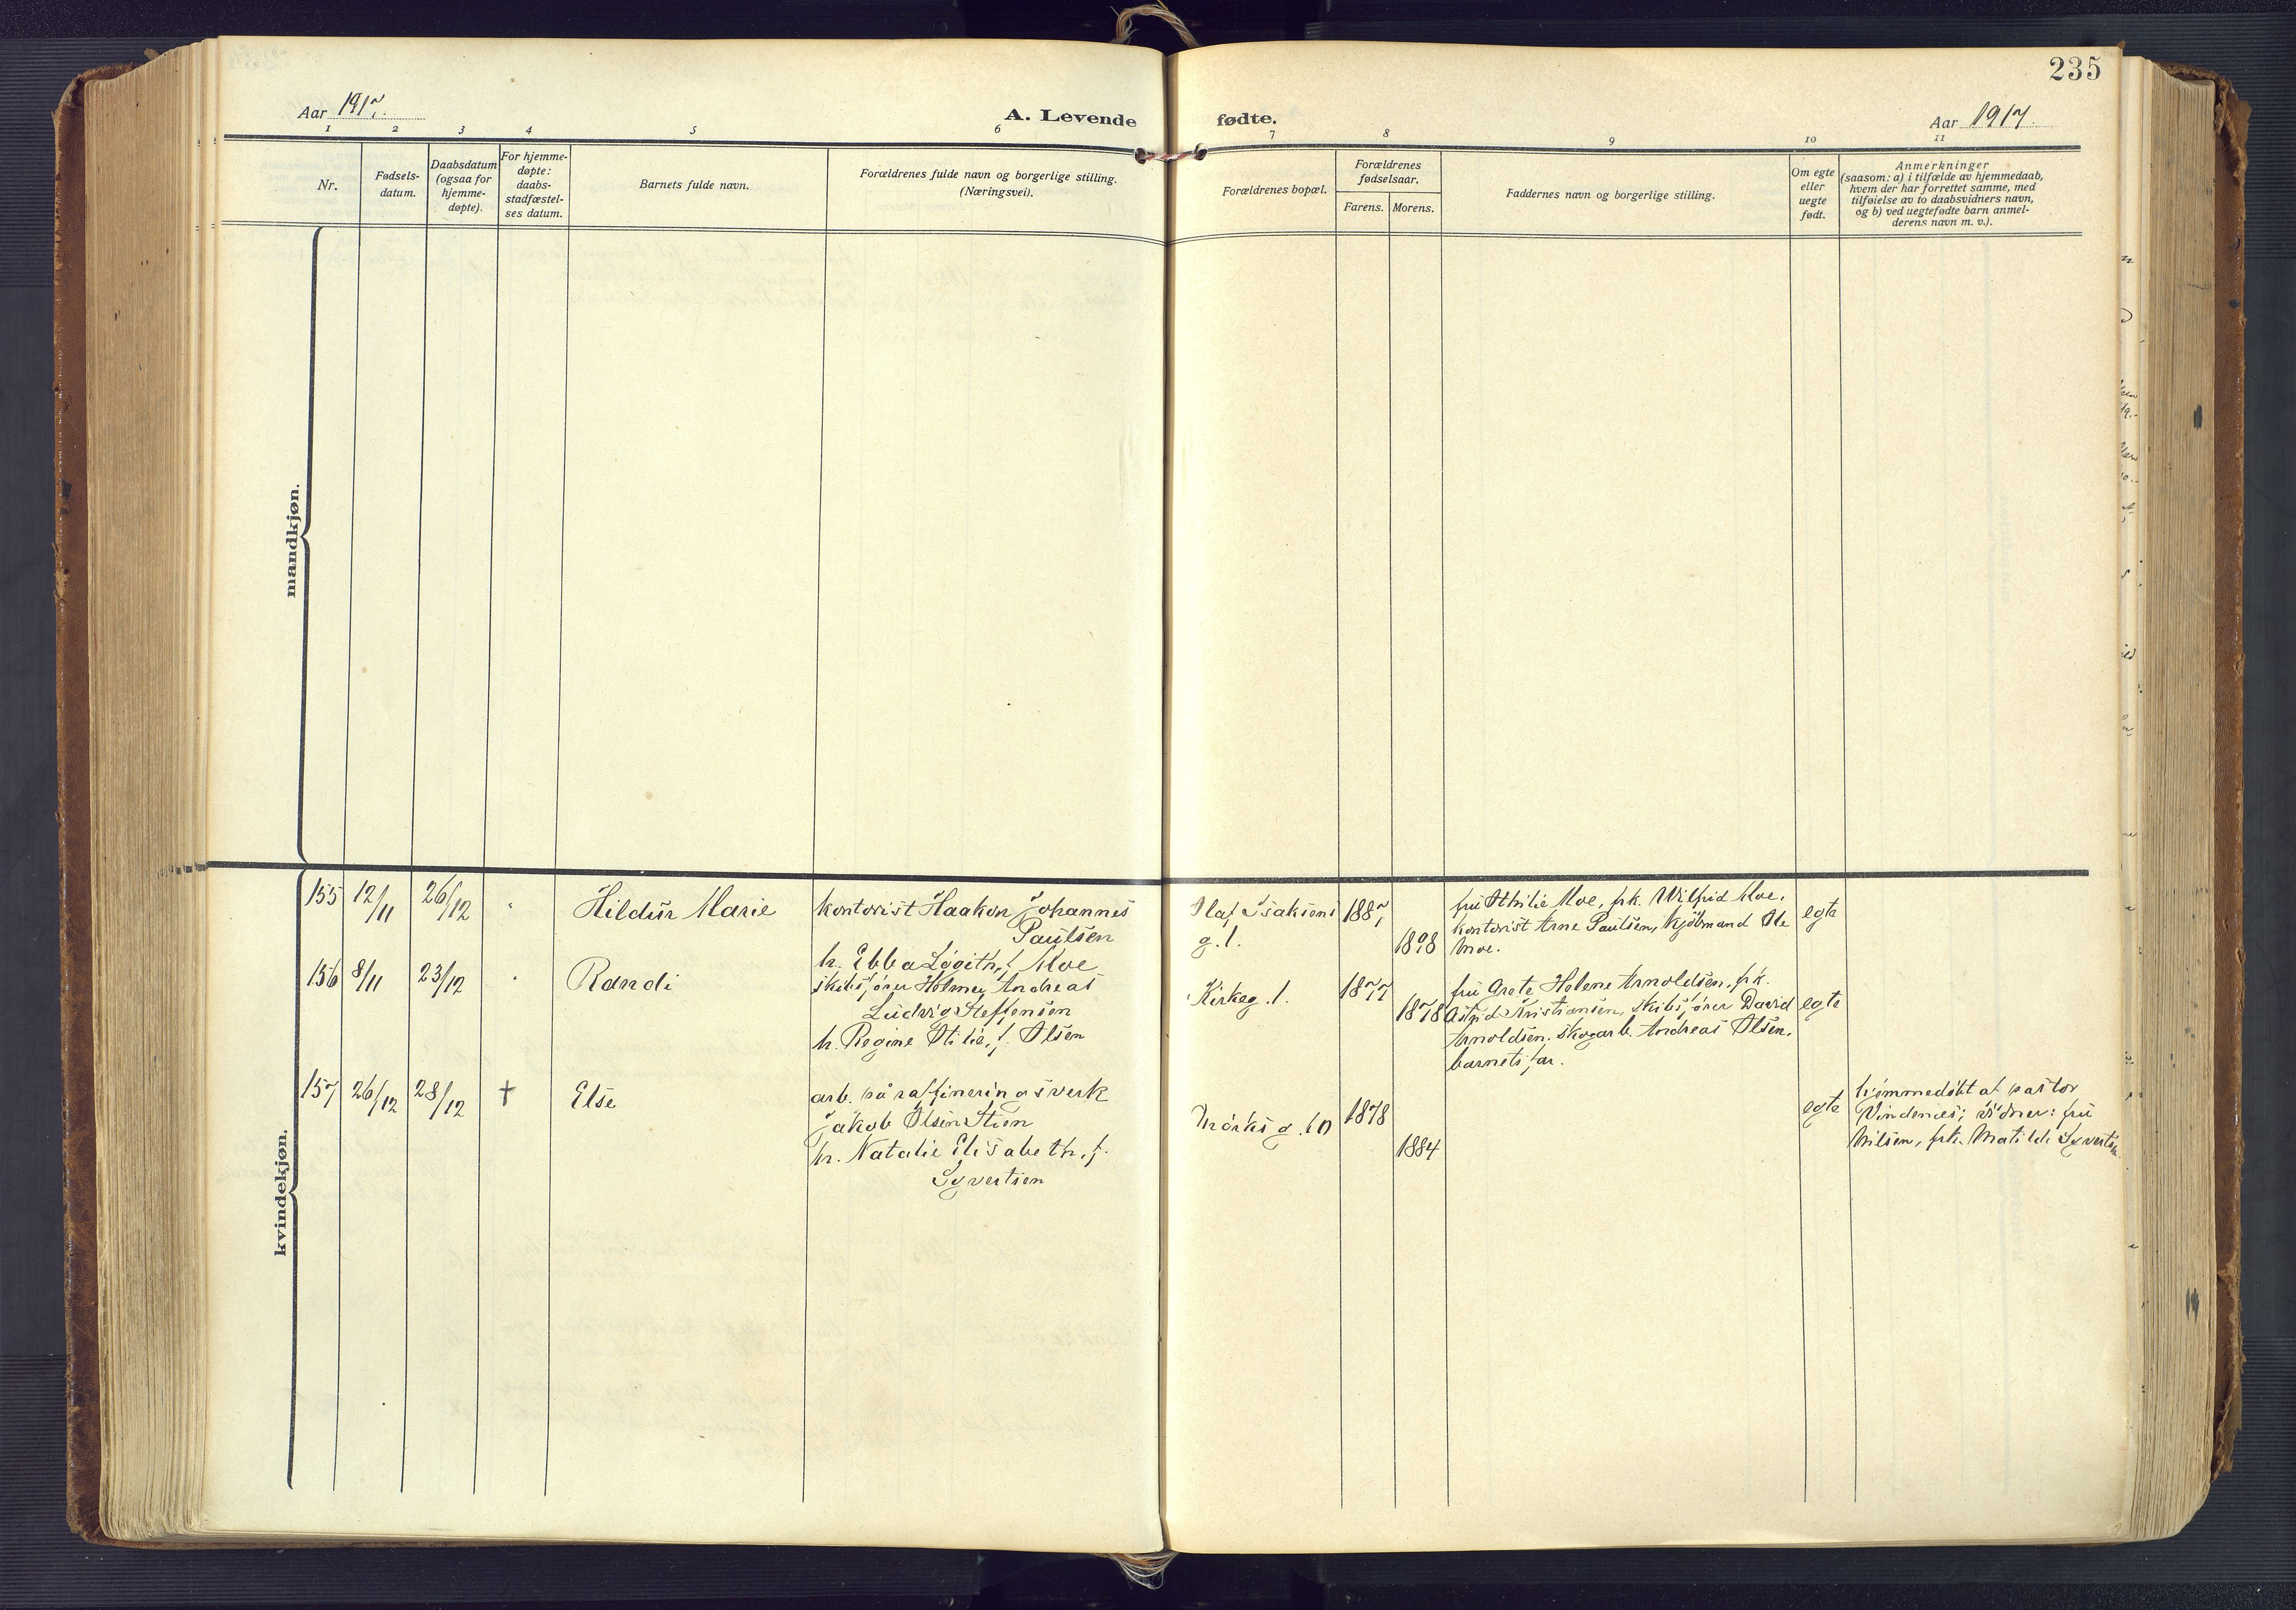 235
Aar 1917.
A. Levende
fødte.
Aar 1917.
1
2
3
4
5
6
7
8
9
10
11
Nr.
Fødsels-
datum.
Daabsdatum
(ogsaa for
hjemme-
døpte).
For hjemme-
døpte:
daabs-
stadfæstel-
ses datum.
Barnets fulde navn.
Forældrenes fulde navn og borgerlige stilling.
(Næringsvei).
Forældrenes bopæl.
Forældrenes
fødselsaar.
Farens.
Morens.
Faddernes navn og borgerlige stilling.
Om egte
eller
uegte
født.
Anmerkninger
(saasom: a) i tilfælde av hjemmedaab,
hvem der har forrettet samme, med
tilføielse av to daabsvidners navn,
og b) ved uegtefødte barn anmel-
derens navn m. v.).
mandkjøn.
kvindekjøn.
155 12/11 26/12 Hildur Marie
kontorist Haakon Johannes
Paulsen
h. Ebba f. Moe
Olaf Isaksens
g. 1.
1887
1898
fru Moe, frk. Wilfrid Moe,
kontorist Arne Paulsen, kjøbmand Ole
Moe.
egte
156 8/11 23/12 Randi
skibsfører Holmer Andreas
Ludvig Steffensen
h. Regine Otilie, f. Olsen
Kirkeg. 1.
1877
1878
fru Grete Helene Arnoldsen, frk.
Astrid Kristiansen, skibsfører David
Arnoldsen, skogarb. Andreas Olsen,
barnets far.
egte
157 26/12 28/12 † Else
arb. på raffineringsverk
Jakob Olsen Stien
h. Natalie Elisabeth, f.
Syvertsen
Mørks g. 10
1878
1884
egte
hjemmedøbt af pastor
Vindenes; vidner: fru
Nilsen, frk. Matilde Syvertsen